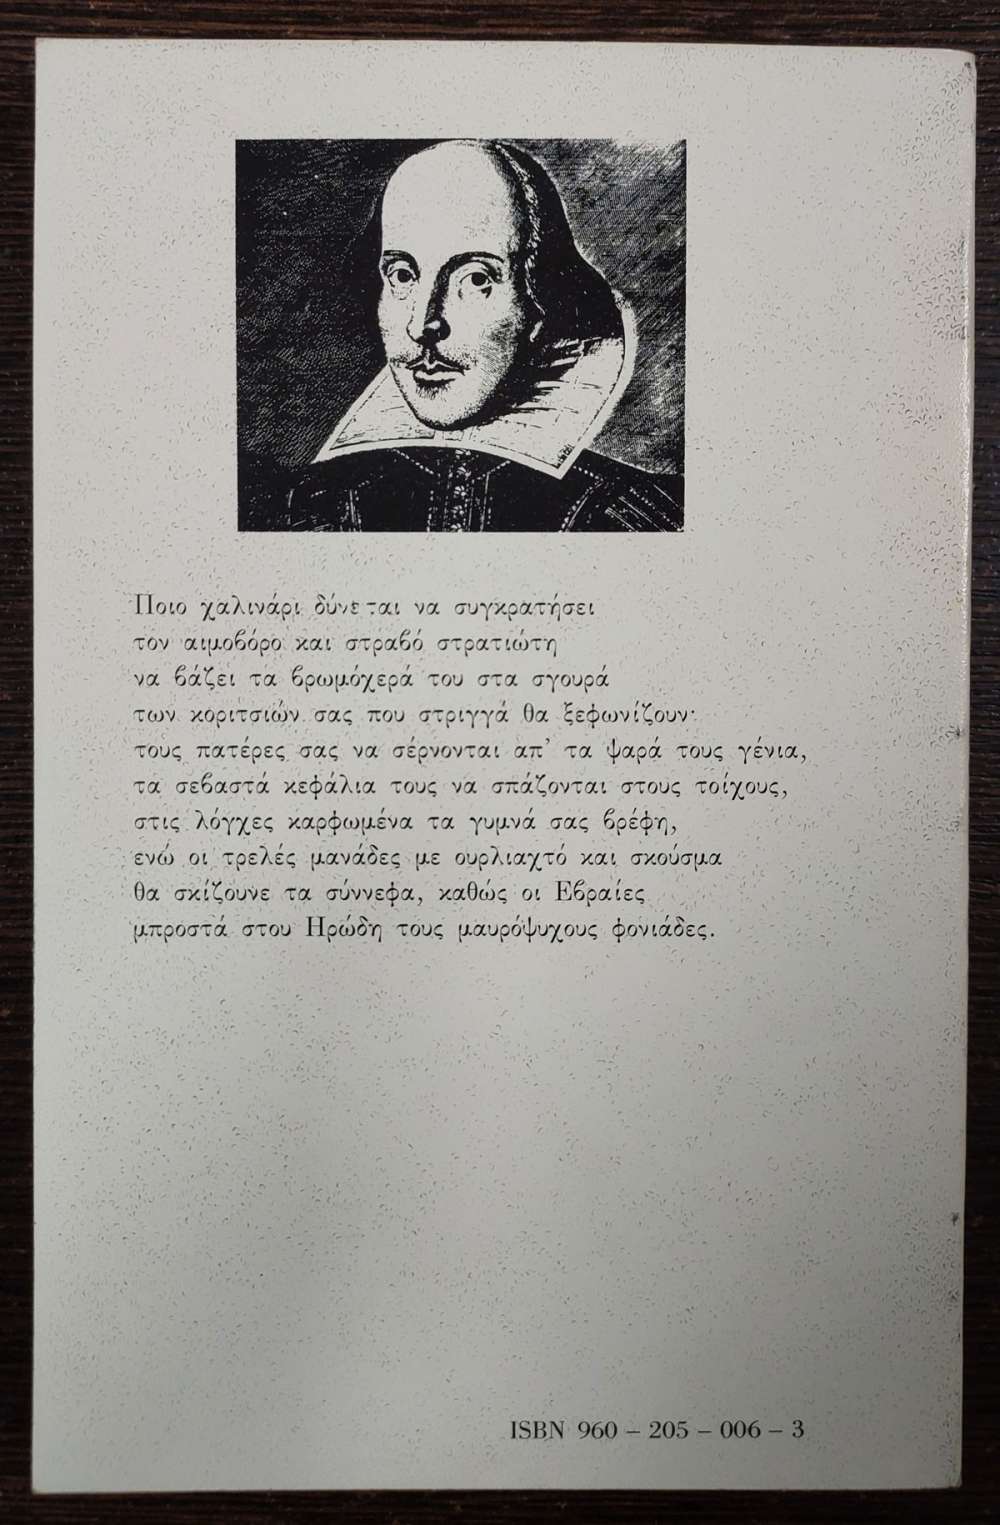 Ποιο χαλινάρι δύνεται να συγκρατήσει
τον αιμοβόρο και στραβό στρατιώτη
να βάζει τα βρωμόχερά του στα σγουρά
των κοριτσιών σας που στριγγά θα ξεφωνίζουν·
τους πατέρες σας να σέρνονται απ' τα ψαρά τους γένια,
τα σεβαστά κεφάλια τους να σπάζονται στους τοίχους,
στις λόγχες καρφωμένα τα γυμνά σας βρέφη,
ενώ οι τρελές μανάδες με ουρλιαχτό και σκούσμα
θα σκίζουνε τα σύννεφα, καθώς οι Εβραίες
μπροστά στου Ηρώδη τους μαυρόψυχους φονιάδες.
ISBN 960 – 205 – 006 – 3